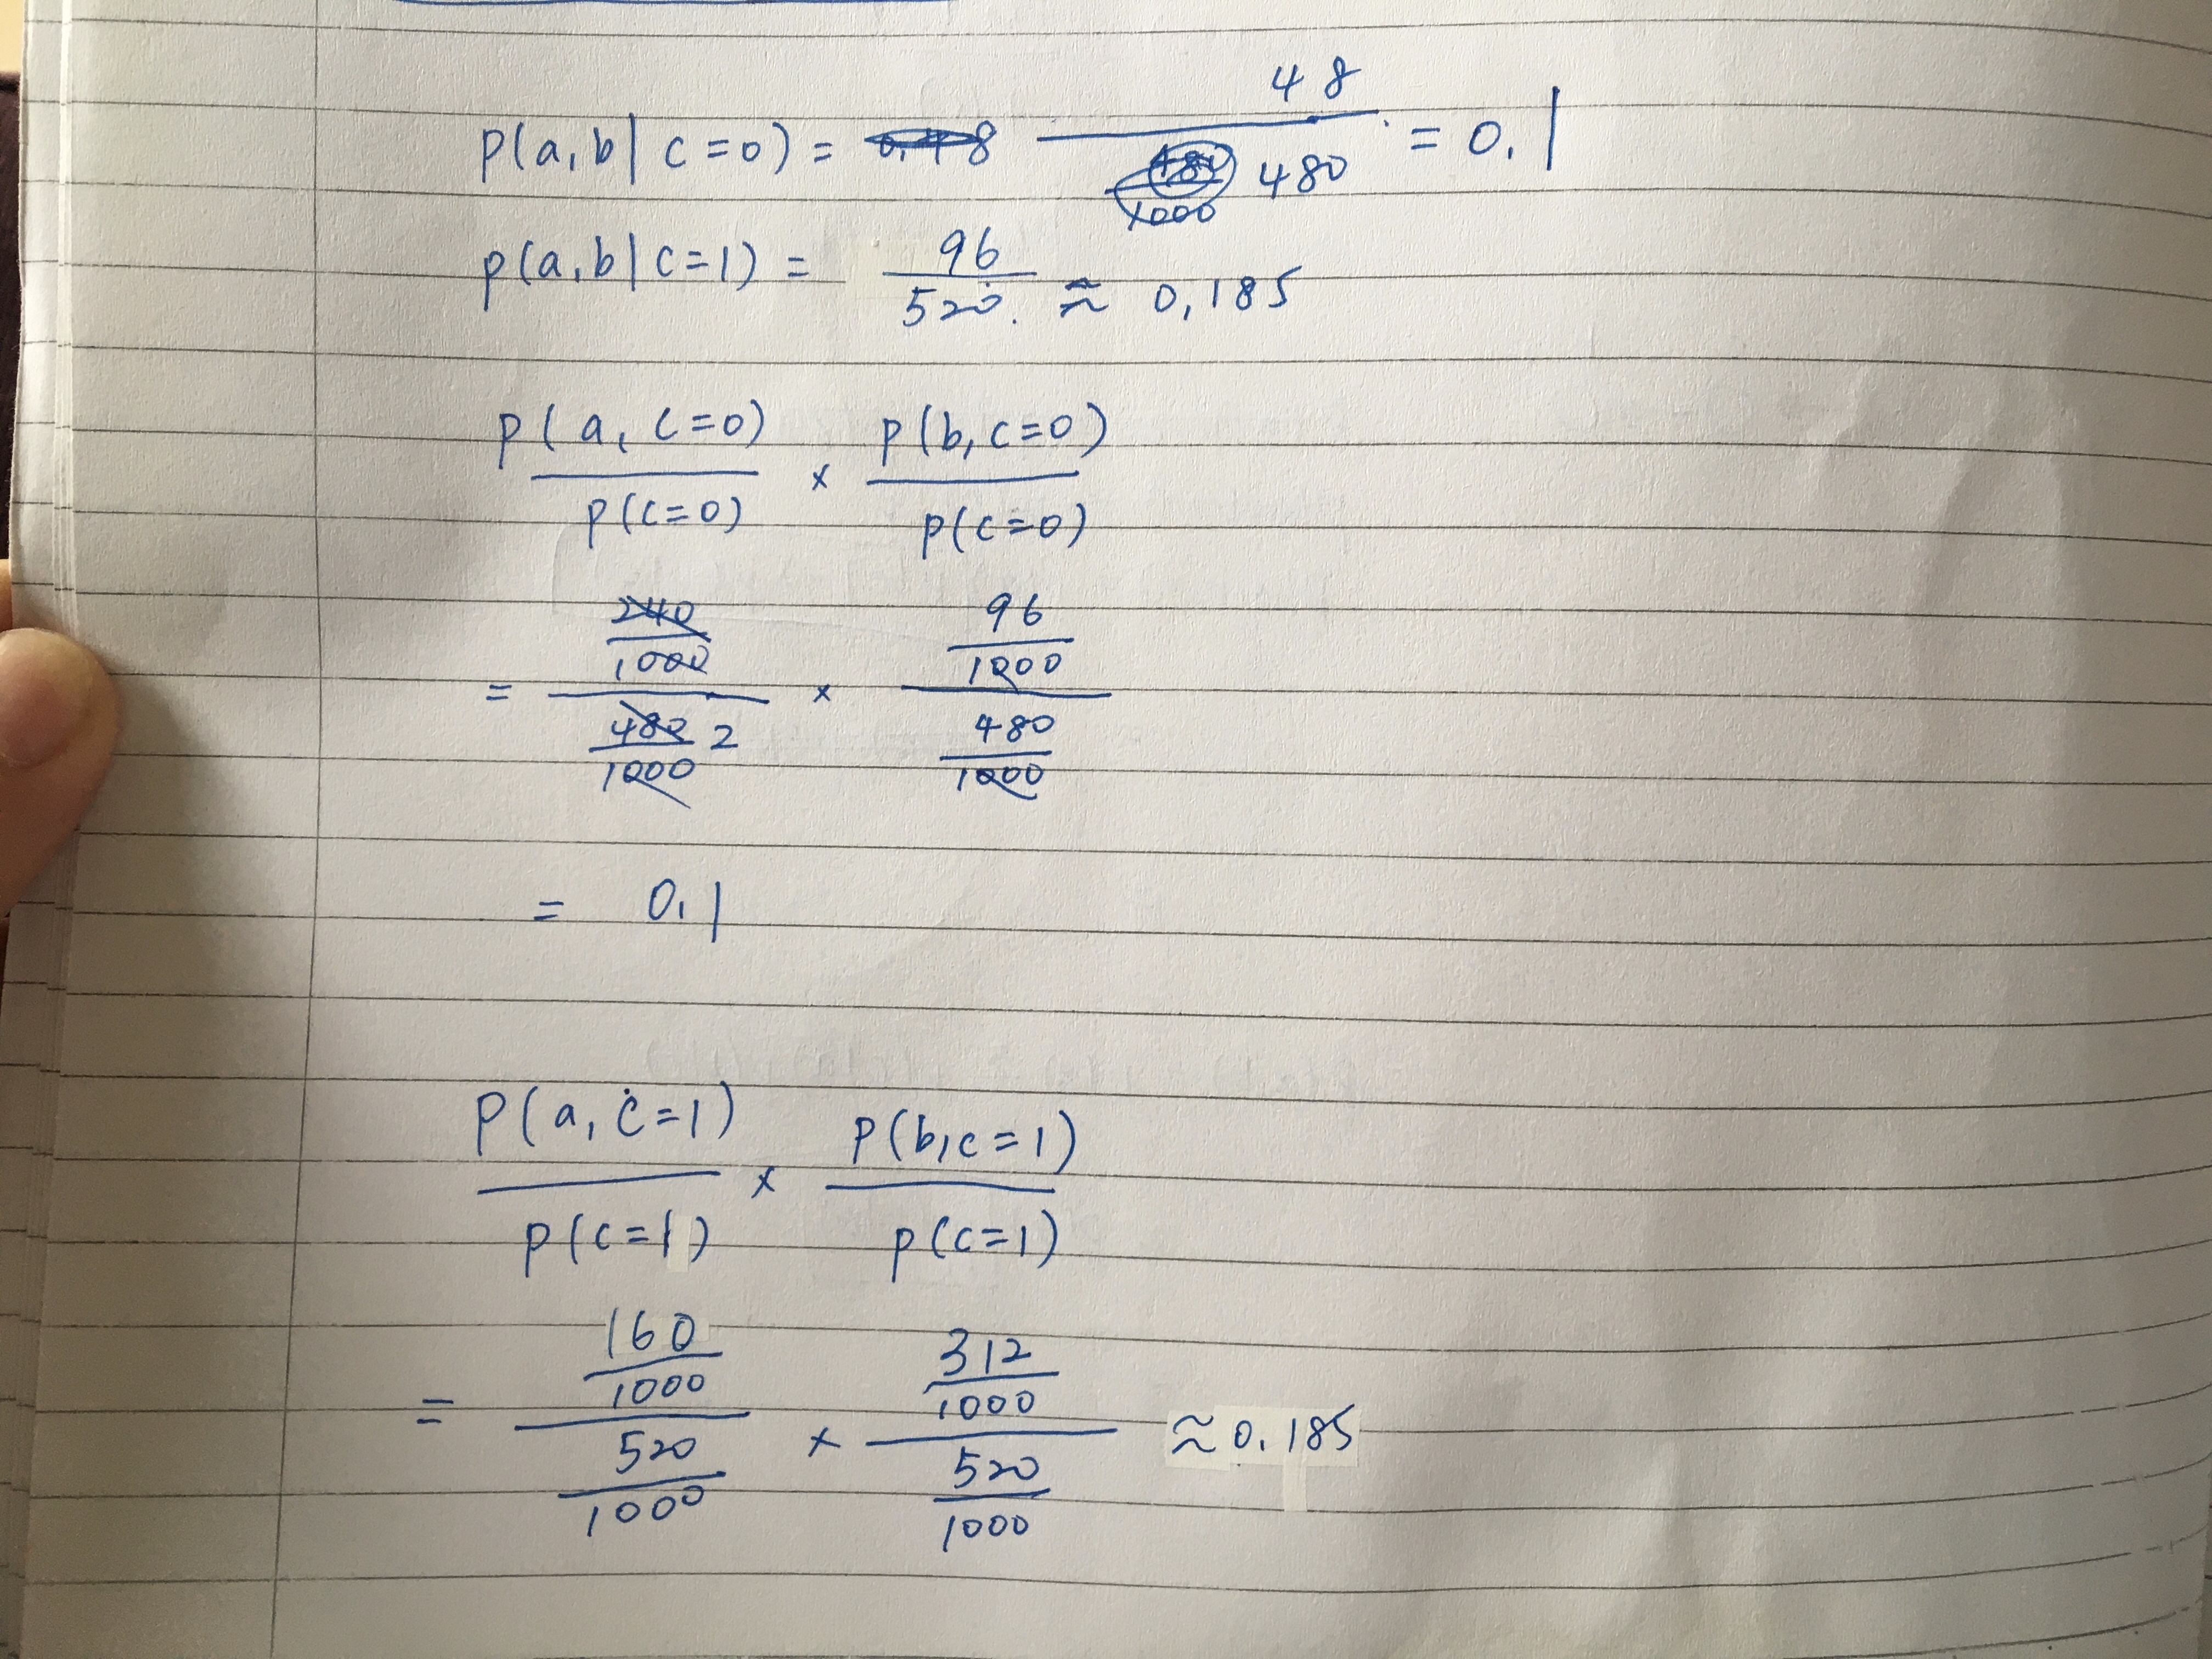 p(a,b|c=0) = 48/480 = 0.1
p(a,b|c=1) = 96/520. ≈ 0,185
p(a,c=0)/p(c=0) × p(b,c=0)/p(c=0)
= (240/1000)/(480/1000) 2 × (96/1000)/(480/1000)
= 0.1
P(a,c=1)/p(c=1) × P(b,c=1)/p(c=1)
= (160/1000)/(520/1000) × (312/1000)/(520/1000) ≈ 0.185